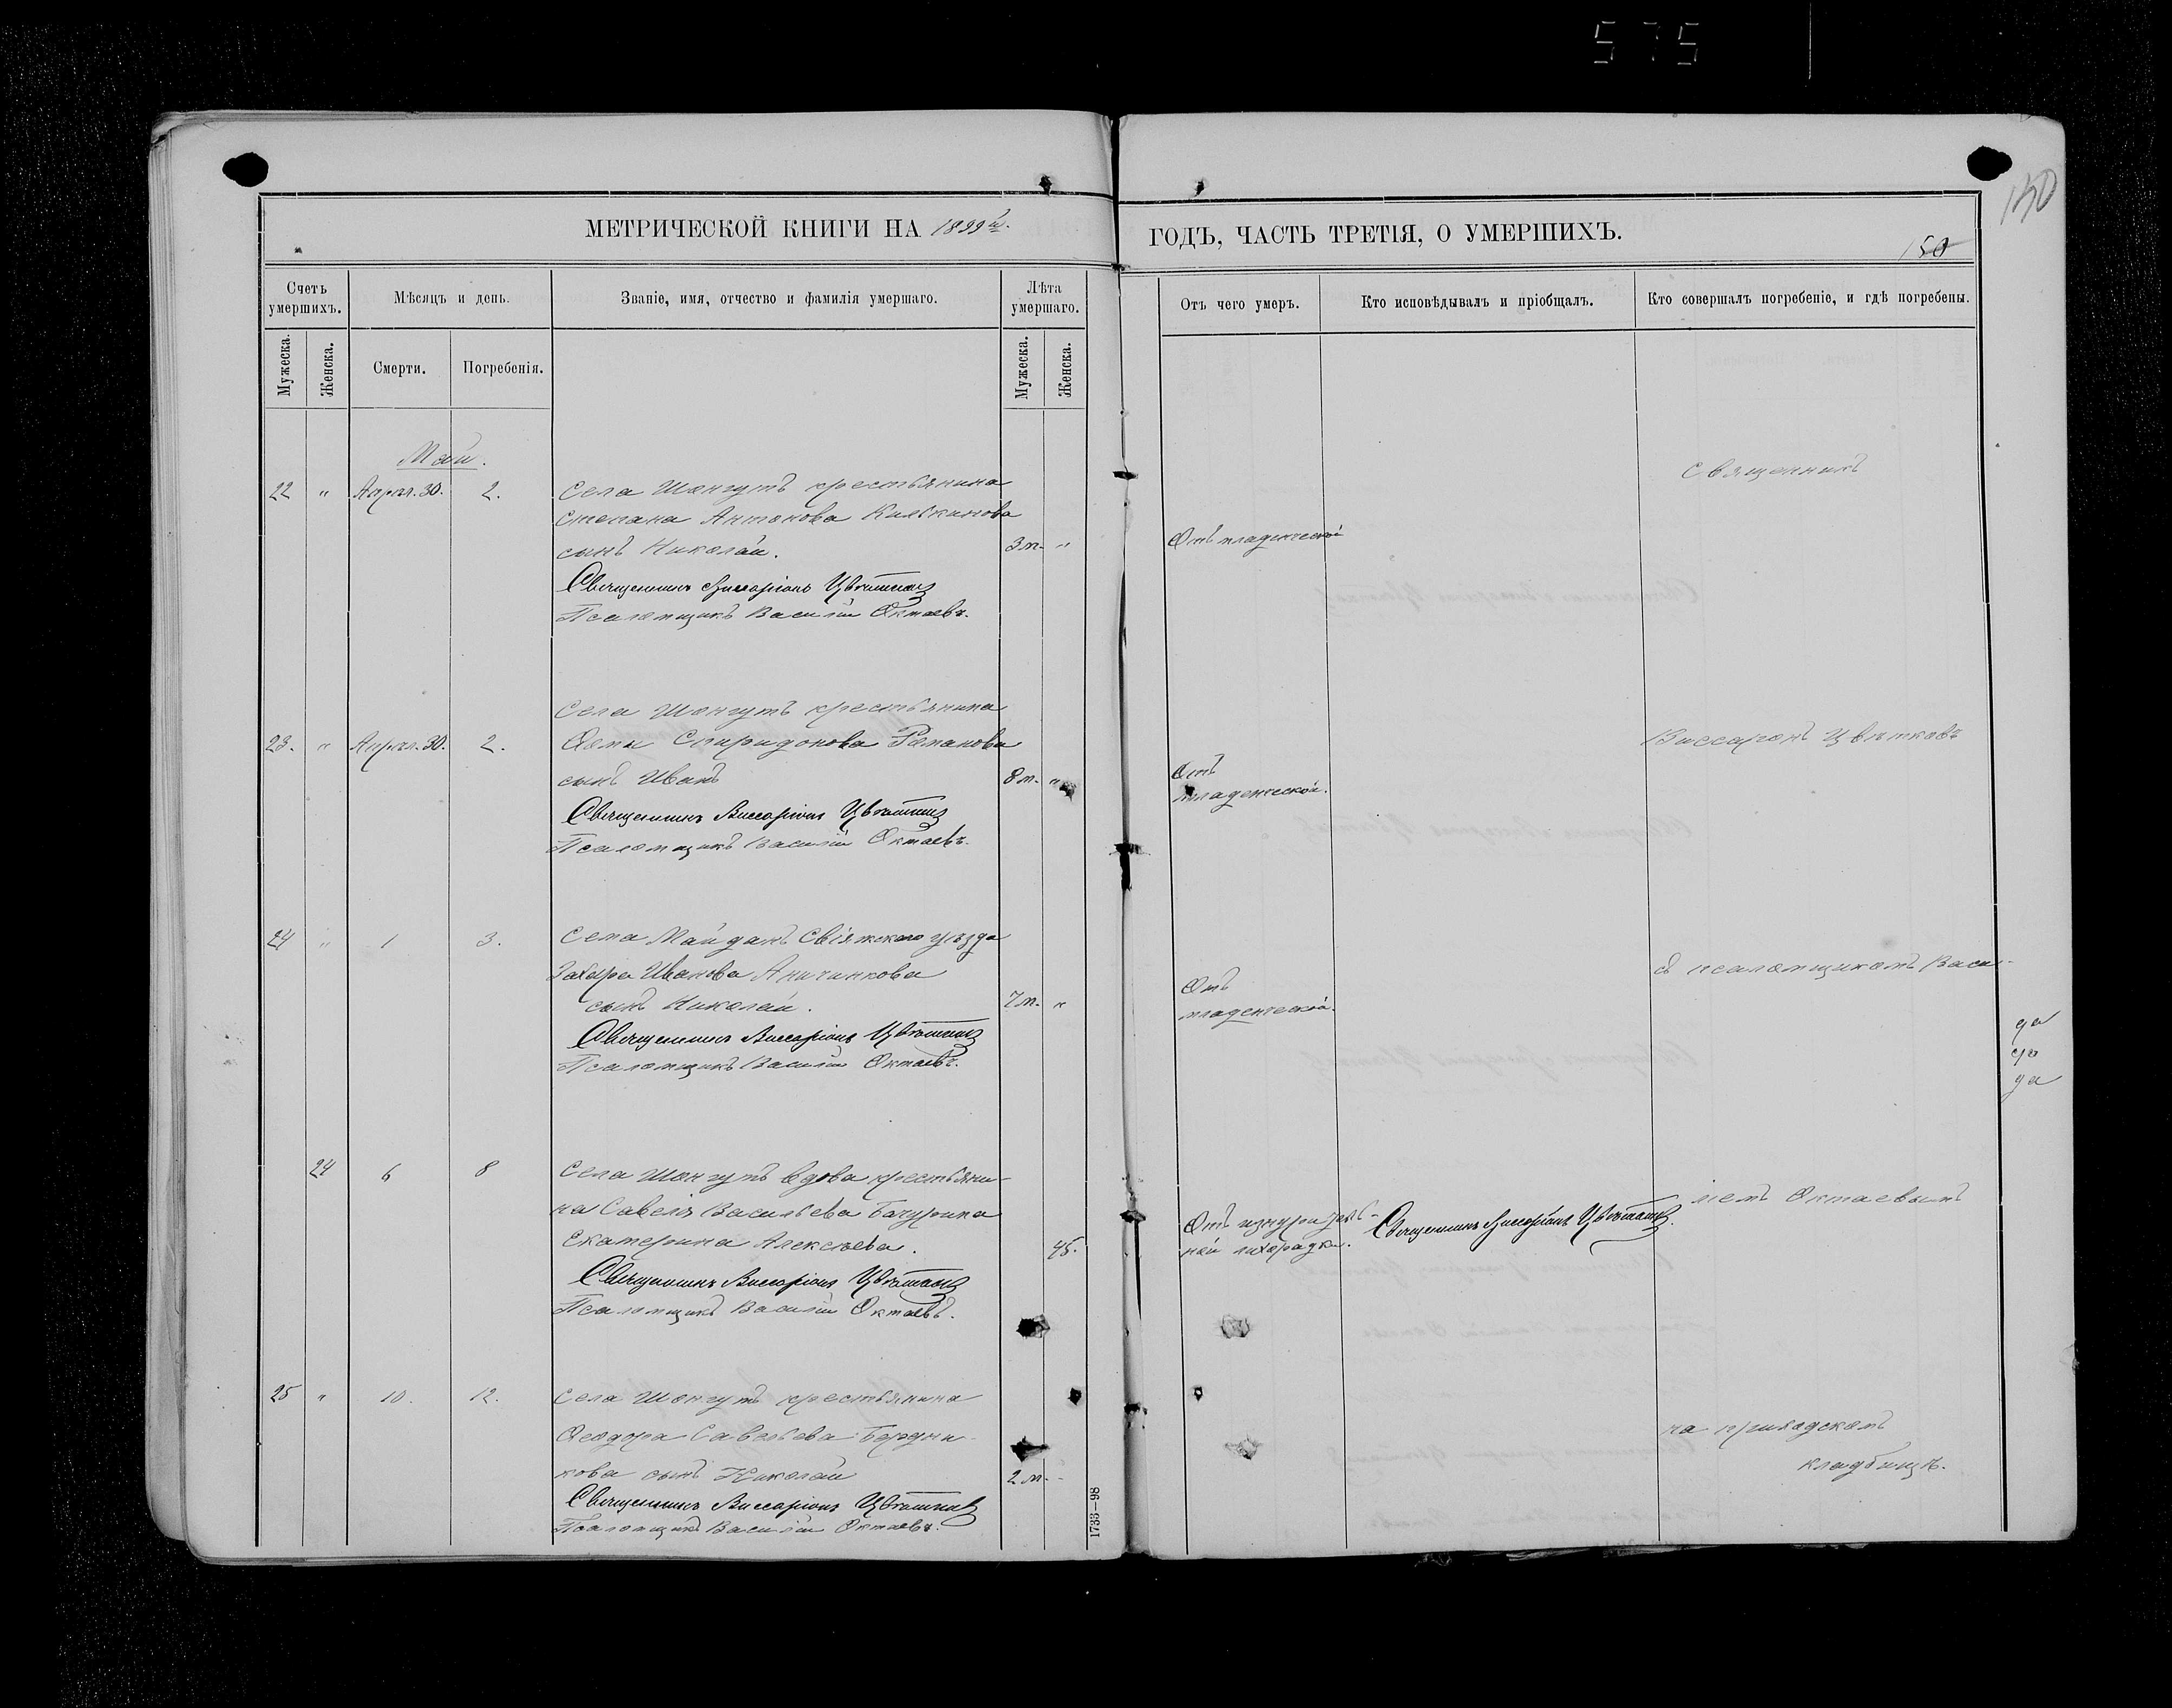 575
150
МЕТРИЧЕСКОЙ КНИГИ НА 1899й.
ГОДЪ, ЧАСТЬ ТРЕТІЯ, О УМЕРШИХЪ.
150
Счетъ умершихъ.
Мѣсяцъ и день.
Званіе, имя, отчество и фамилія умершаго.
Лѣта умершаго.
Отъ чего умеръ.
Кто исповѣдывалъ и пріобщалъ.
Кто совершалъ погребеніе, и гдѣ погребены.
Мужеска.
Женска.
Смерти.
Погребенія.
Мужеска.
Женска.
Май.
22 " Апрел. 30. 2. Села Шонгутъ крестьянина
Степана Антонова Килькинова
сынъ Николай. 3 м. "
Отъ младенческой
Священникъ Виссаріонъ Цвѣтковъ
Псаломщикъ Василій Октаевъ.
Священникъ
Села Шонгутъ крестьянина
23. " Апрел. 30. 2. Ѳомы Спиридонова Романова
сынъ Иванъ 8 м. "
Отъ
младенческой.
Священникъ Виссаріонъ Цвѣтковъ
Псаломщикъ Василій Октаевъ.
Виссаріонъ Цвѣтковъ
24 " 1 3. Села Майданъ Свіяжскаго уѣзда
Захара Иванова Аничинкова
сынъ Николай. 7 м. "
Отъ
младенческой.
Священникъ Виссаріонъ Цвѣтковъ
Псаломщикъ Василій Октаевъ.
съ псаломщикомъ Васи-
да
да
да
24 6 8 Села Шонгутъ вдова крестьяни-
на Савелія Васильева Бачурина
Екатерина Алексѣева. 45.
Отъ изнурител-
ной лихорадки.
Священникъ Виссаріонъ Цвѣтковъ.
Священникъ Виссаріонъ Цвѣтковъ
Псаломщикъ Василій Октаевъ.
ліемъ Октаевымъ
25 " 10. 12. Села Шонгутъ крестьянина
Ѳеодора Савельева Бердни-
кова сынъ Николай 2 м. -
Священникъ Виссаріонъ Цвѣтковъ
Псаломщикъ Василій Октаевъ.
на приходскомъ
кладбищѣ.
1733—98